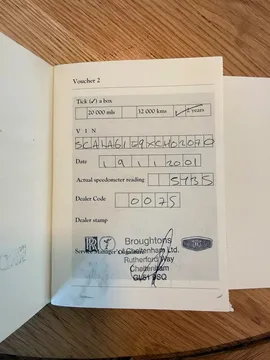 Voucher 2
Tick (✓) a box
20 000 mls 12 000 kms years
V I N
Date 1 9 1 1 2001
Actual speedometer reading
Dealer Code 0 0 7 5
Dealer stamp
Service Manager
Broughtons
of Cheltenham Ltd.
Rutherford Way
Cheltenham
GL51 9SQ